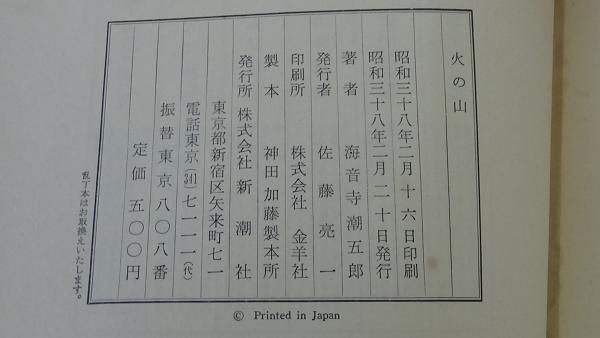 火の山
昭和三十八年二月十六日印刷
昭和三十八年二月二十日発行
著者 海音寺潮五郎
発行者 佐藤亮一
印刷所 株式会社 金羊社
製本 神田 加藤製本所
発行所 株式会社 新潮社
東京都新宿区矢来町七一
電話東京(341)七一一一(代)
振替東京八〇八番
定価 五〇〇円
乱丁本はお取換えいたします。
© Printed in Japan